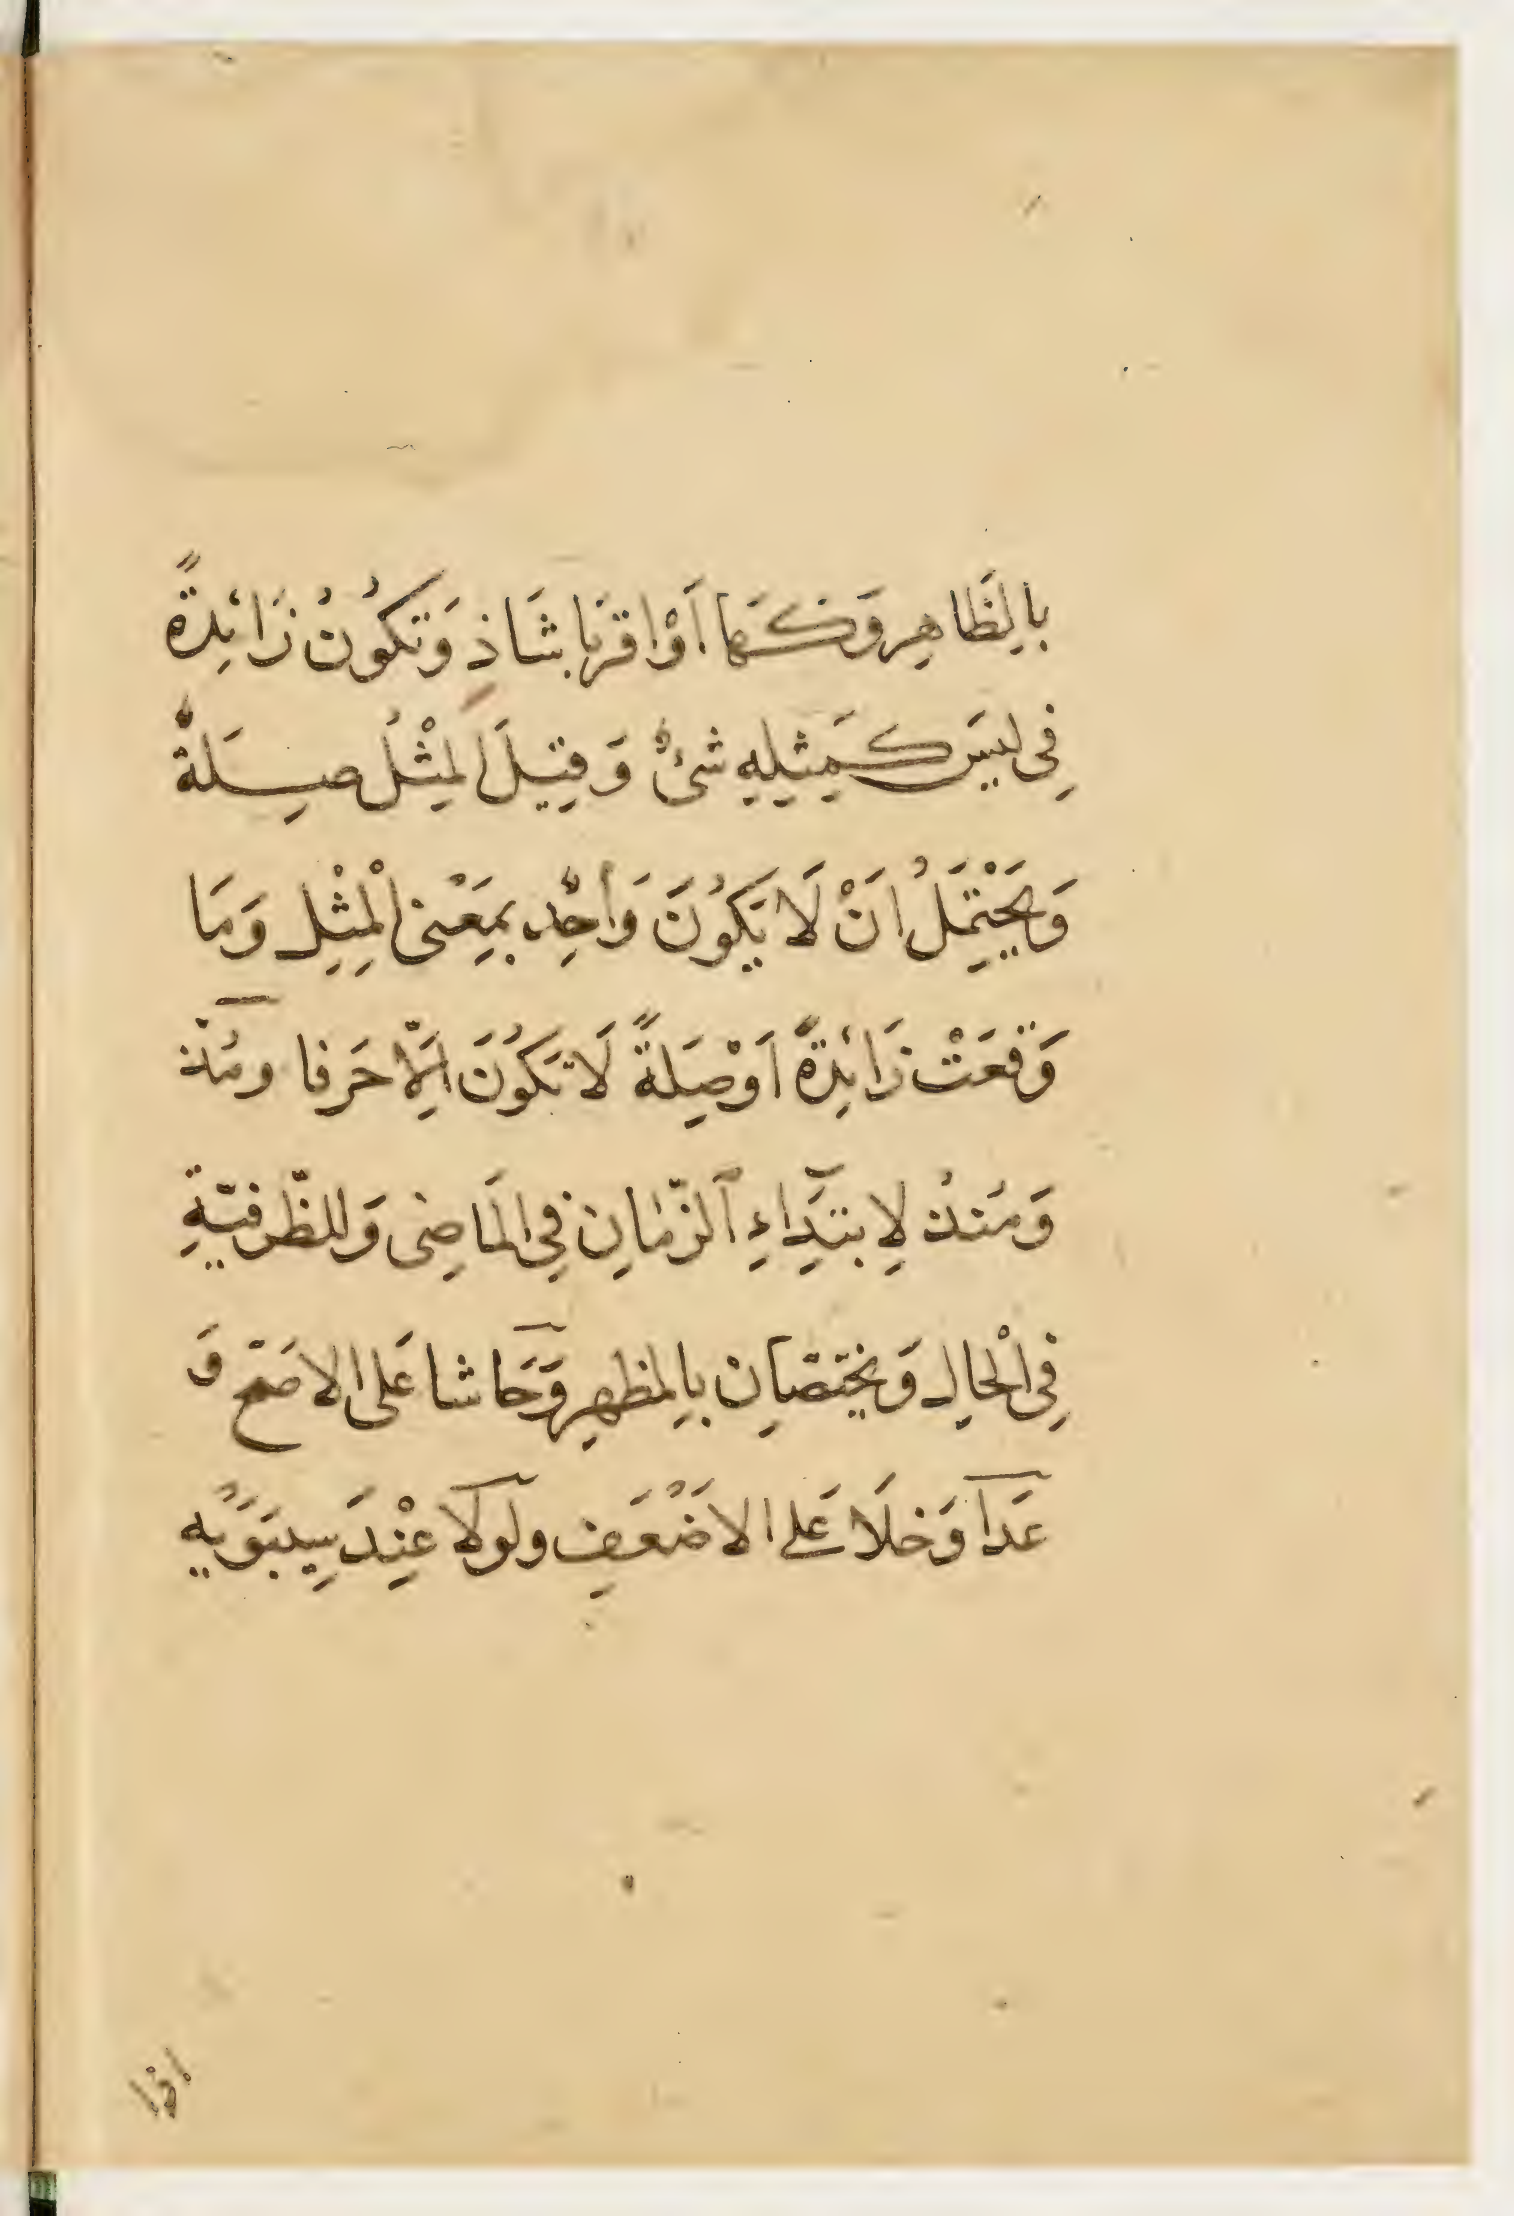 بِالظَّاهِرِ وَكَهَا اَوْاقْرَبَا شَاذٍ وَتَكُونُ زَائِدَةً
فِي لَيسَ كَمِثْلِهِ شَيْءٌ وَقِيلَ لِمْثْلُ صِلَةٌ
وَيَحْتَمِلُ اَنْ لَا يَكُونَ وَاحِدٌ بِمَعْنى الْمِثْلِ وَمَا
وَقعَتْ زَائِدَةً اَوْصِلَةً لَا تَكُونَ اِلَّا حَرفا ومُذ
وَمُنذُ لِابتَدَاءِ الزّمانِ فِي المَاضِى وَللظّرفيّةِ
فِي الْحالِ وَيختصّانِ بِالمظهِرِ وَحَاشا عَلى الاصَحّ وَ
عَدَا وَخلَا عَلى الاضْعَفِ ولولا عِنْدَ سِيبَوَيه
اذا